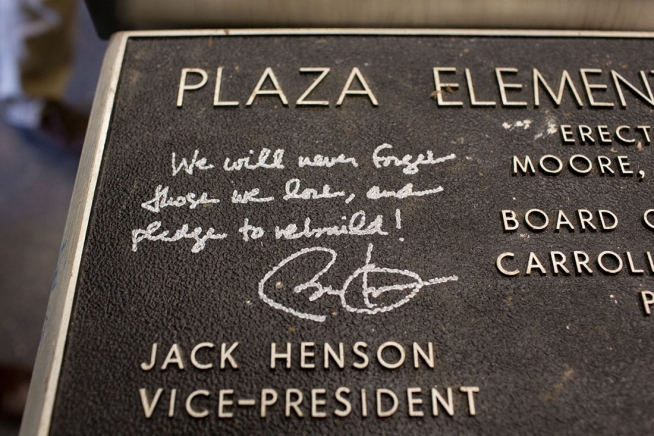 PLAZA ELEMENT
ERECT
MOORE,
We will never forget
those we love, and
pledge to rebuild!
BOARD O
CARROLL
P
JACK HENSON
VICE-PRESIDENT